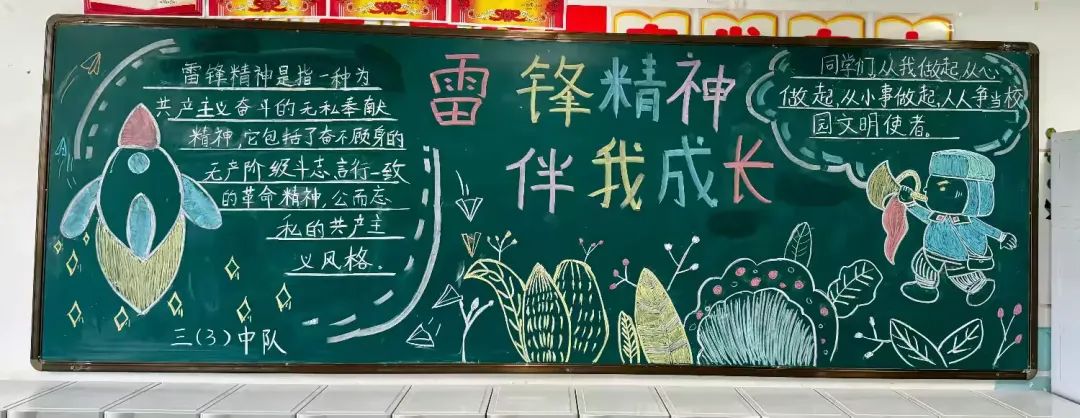 雷锋精神是指一种为
共产主义奋斗的无私奉献
精神，它包括了奋不顾身的
无产阶级斗志，言行一致
的革命精神，公而忘
私的共产主
义风格。
三(3)中队
雷锋精神
伴我成长
同学们，从我做起，从心
做起，从小事做起，人人争当校
园文明使者。